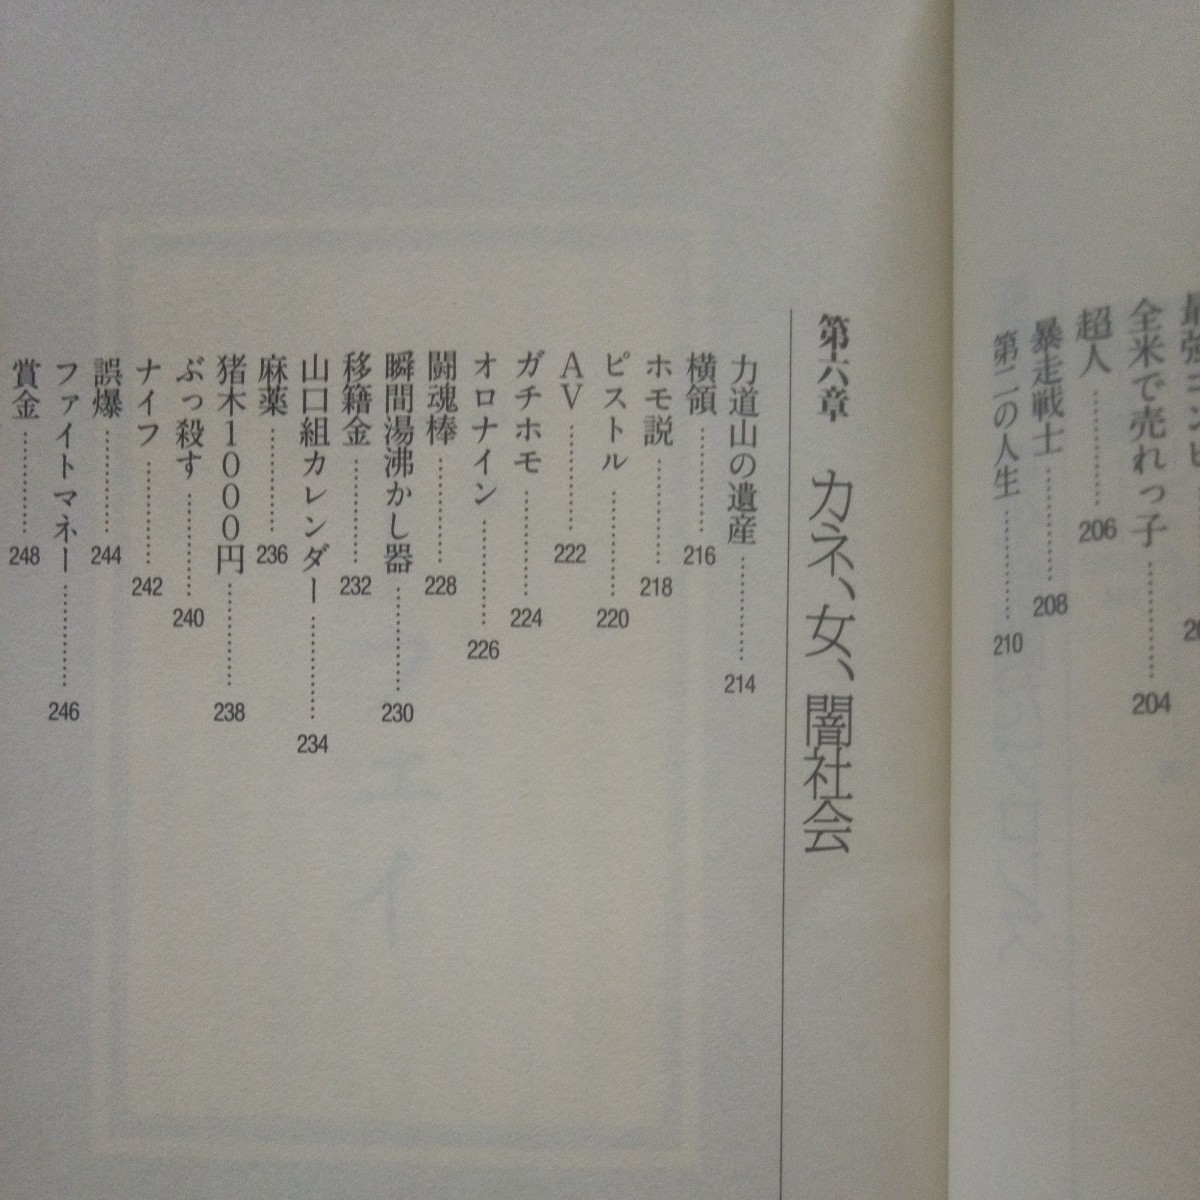 全米で売れっ子…………204
超人…………206
暴走戦士…………208
第二の人生…………210
第六章 カネ、女、闇社会
力道山の遺産…………214
横領…………216
ホモ説…………218
ピストル…………220
AV…………222
ガチホモ…………224
オロナイン…………226
闘魂棒…………228
瞬間湯沸かし器…………230
移籍金…………232
山口組カレンダー…………234
麻薬…………236
猪木1000円…………238
ぶっ殺す…………240
ナイフ…………242
誤爆…………244
ファイトマネー…………246
賞金…………248